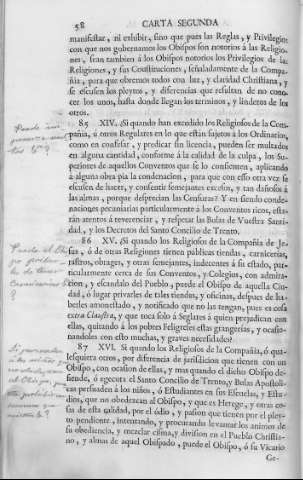 58 CARTA SEGUNDA
manifestar, ni exhibir, sino que pues las Reglas, y Privilegios
con que nos gobernamos los Obispos son notorios à las Religio-
nes, sean tambien à los Obispos notorios los Privilegios de las
Religiones, y sus Constituciones, señaladamente de la Compa-
ñia, para que obremos todos con luz, y claridad Christiana, y
se escusen los pleytos, y diferencias que resultan de no cono-
cer los unos, hasta donde llegan los terminos, y linderos de los
otros.
85 XIV. ¿Si quando han excedido los Religiosos de la Com-
pañia, ù otros Regulares en lo que estàn sujetos à los Ordinarios,
como en confesar, y predicar sin licencia, pueden ser multados
en alguna cantidad, conforme à la calidad de la culpa, los Su-
periores de aquellos Conventos que se lo consienten, aplicando
à alguna obra pia la condenacion, para que con esto otra vez se
escusen de hacer, y consentir semejantes excesos, y tan dañosos à
las almas, porque desprecian las Censuras? Y en siendo conde-
naciones pecuniarias particularmente à los Conventos ricos, esta-
ràn atentos à reverenciar, y respetar las Bulas de Vuestra Santi-
dad, y los Decretos del Santo Concilio de Trento.
86 XV. ¿Si quando los Religiosos de la Compañia de Je-
sus, ò de otras Religiones tienen publicas tiendas, carnicerias,
rastros, obrages, y otras semejantes, indecentes à su estado, par-
ticularmente cerca de sus Conventos, y Colegios, con admira-
cion, y escandalo del Pueblo, puede el Obispo de aquella Ciu-
dad, ò lugar privarles de tales tiendas, y oficinas, despues de ha-
berles amonestado, y notificado que no las tengan, pues es cosa
extra Claustra, y que toca solo à Seglares à quien perjudican con
ellas, quitando à los pobres Feligreses estas grangerias, y ocasio-
nandolos con esto muchas, y graves necesidades?
87 XVI. Si quando los Religiosos de la Compañia, ò qua-
lesquiera otros, por diferencia de jurisdiccion que tienen con un
Obispo, con ocasion de ellas, y mas quando el dicho Obispo de-
fiende, ò egecuta el Santo Concilio de Trento, y Bulas Apostoli-
cas persuaden à los niños, ò Estudiantes en sus Escuelas, y Estu-
dios, que no obedezcan al Obispo, y que es Herege, y otras co-
sas de esta calidad, por el odio, y pasion que tienen por el pley-
to pendiente, intentando, y procurando levantar los animos de
su obediencia, y mezclar cisma, y division en el Pueblo Christia-
no, y almas de aquel Obispado, puede el Obispo, ò su Vicario
Ge-